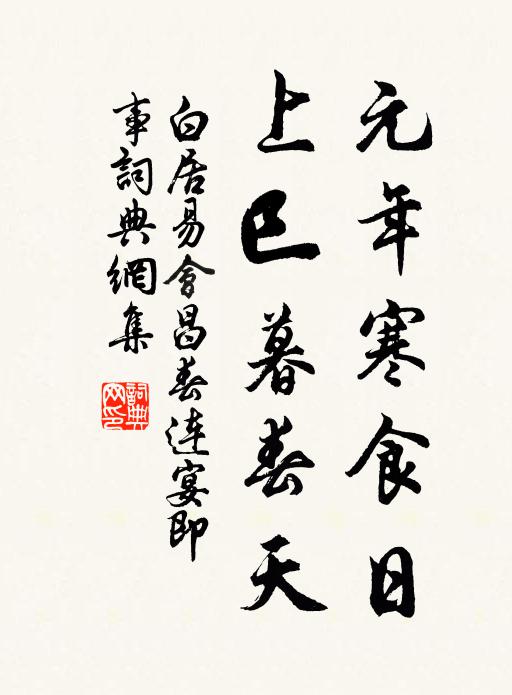 元年寒食日
上巳暮春天
白居易會昌春连宴即
事詞典網集
詞典
网印